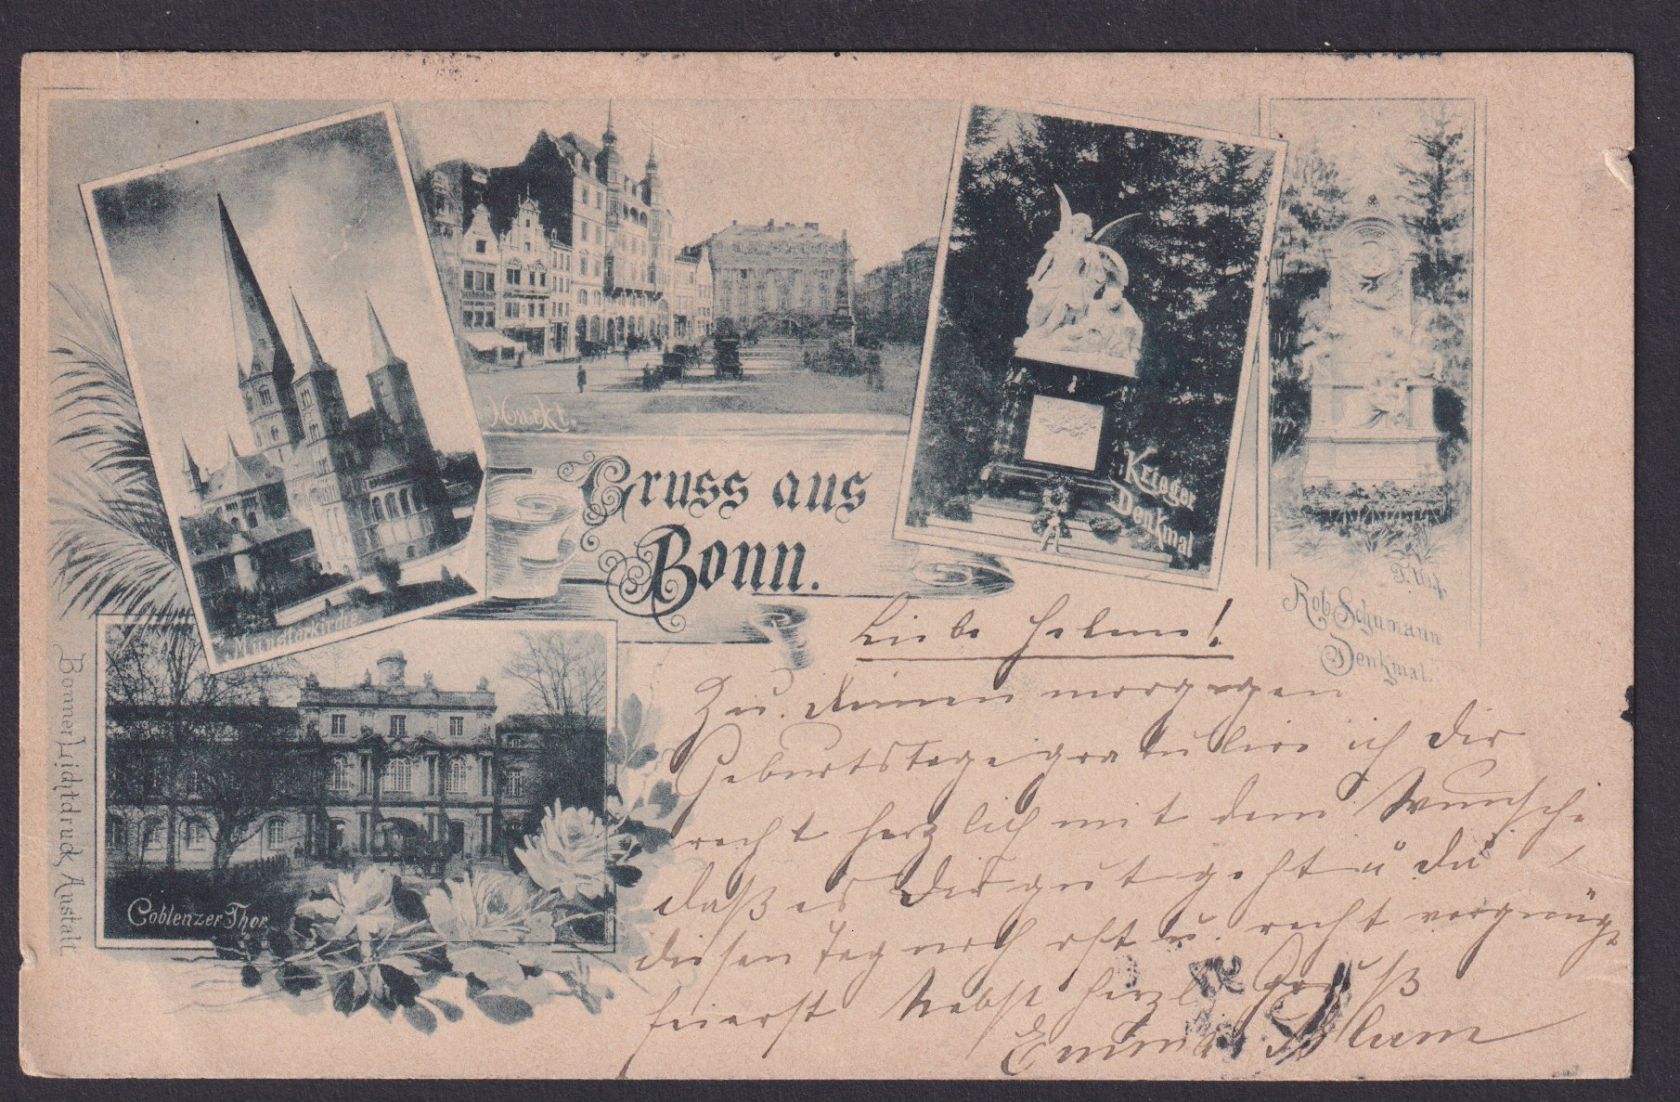 Markt.
Gruss aus
Bonn.
Krieger
Denkmal
Münsterkirche
Rob. Schumann
Denkmal.
Coblenzer Thor.
Bonner Lichtdruck Anstalt
Liebe Helene!
Zu Deinem morgigen
Geburtstage gratulire ich Dir
recht herzlich mit dem Wunsche
daß es Dir gut geht u Du
diesen Tag noch oft u. recht vergnügt
feierst Nebst herzl. Gruß
Emma Blum